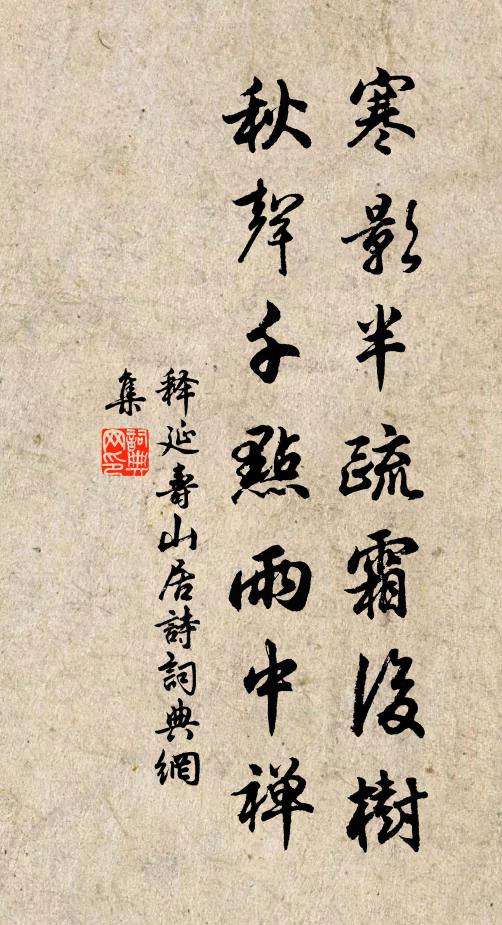 寒影半疏霜後樹
秋聲千點雨中禅
释延壽山居詩詞典網
集
詞典
网印